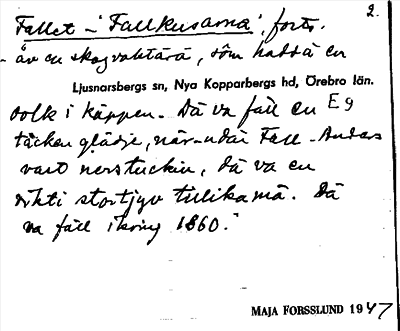 Fallet – 'Fallkusarna', forts. 2.
- åv en skogvaktärä, sôm haddä en
Ljusnarsbergs sn, Nya Kopparbergs hd, Örebro län.
dolk i käppen. Dä va fäll en E9
täcken glädje, när-n där Fall-Anders
vart nerstuckin, dä va en
rikti stortjyv tillika mä. Dä
va fäll ikring 1860."
MAJA FORSSLUND 1947